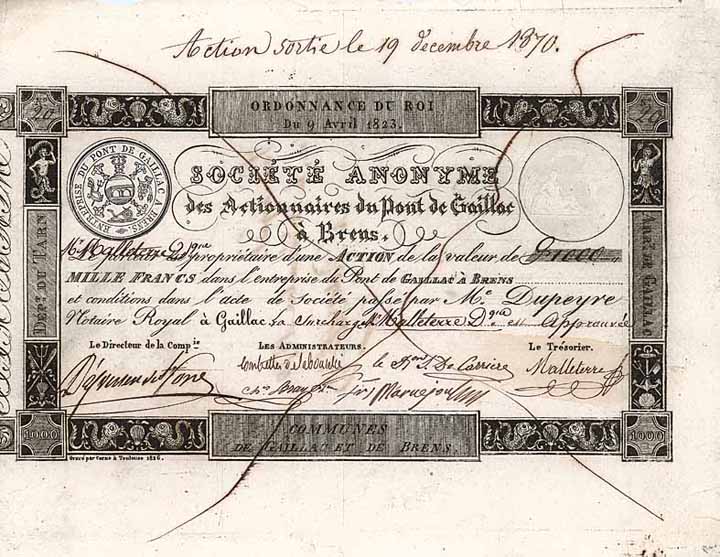 Action sortie le 19 decembre 1870.
ORDONNANCE DU ROI
Du 9 Avril 1823.
ENTREPRISE DU PONT DE GAILLAC A BRENS.
SOCIÉTÉ ANONYME
des Actionnaires du Pont de Gaillac
à Brens.
Mr Malleterre D.que est propriétaire d'une ACTION de la valeur de F. 1000
MILLE FRANCS dans l'entreprise du Pont de GAILLAC À BRENS
et conditions dans l'acte de Société passé par Me Dupeyre
Notaire Royal à Gaillac La Surcharge Mr Malleterre D.que est Approuvée
Le Directeur de la Comp.ie
LES ADMINISTRATEURS.
Le Trésorier.
Malleterre
DEP.t DU TARN
ARR.t DE GAILLAC
1000
COMMUNES
DE GAILLAC ET DE BRENS.
1000
Gravé par Corne à Toulouse 1826.